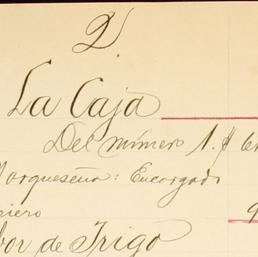 2
La Caja
Del número 1. $
orqueseña: Encargado
niero
bor de Trigo